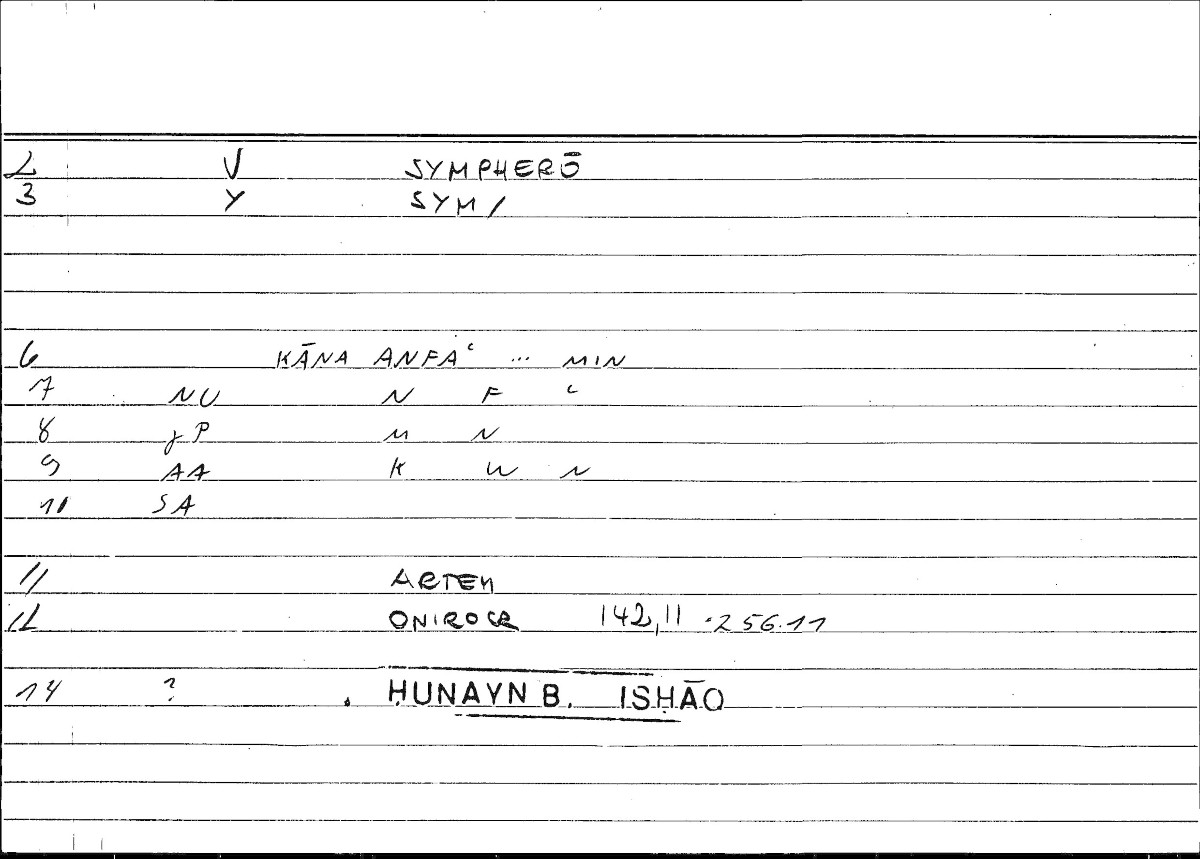 2 V SYMPHERŌ
3 Y SYM/
6 KĀNA ANFAʿ ... MIN
7 NU N F ʿ
8 γP M N
9 AA K W N
10 SA
11 ARTEM
12 ONIROCR 142,11 · 256.11
14 ? . ḤUNAYN B. ISḤĀQ